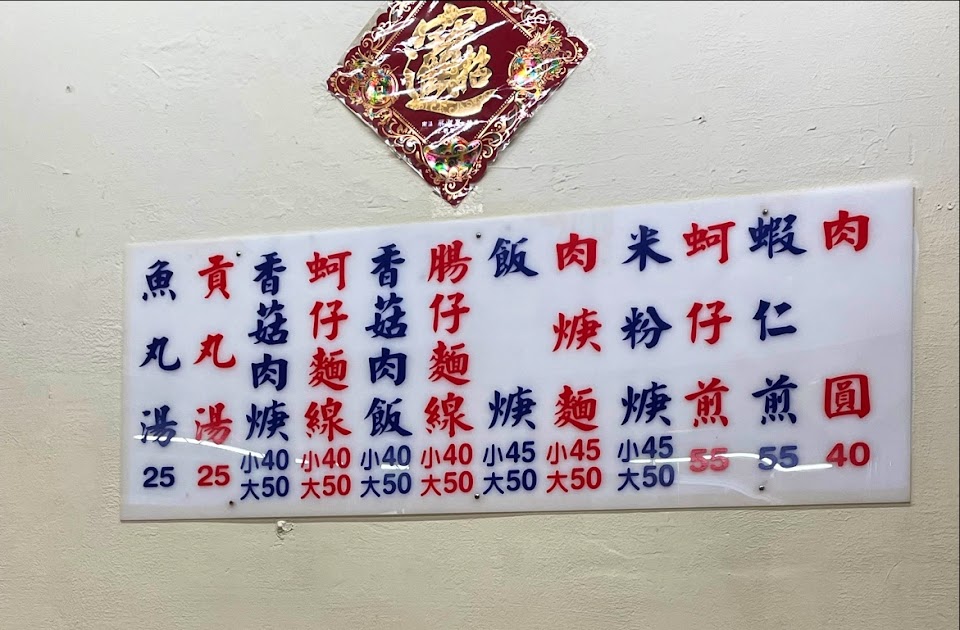 招財進寶
肉圓 40
蝦仁煎 55
蚵仔煎 55
米粉焿 小45 大50
肉焿麵 小45 大50
飯焿 小45 大50
腸仔麵線 小40 大50
香菇肉飯 小40 大50
蚵仔麵線 小40 大50
香菇肉焿 小40 大50
貢丸湯 25
魚丸湯 25